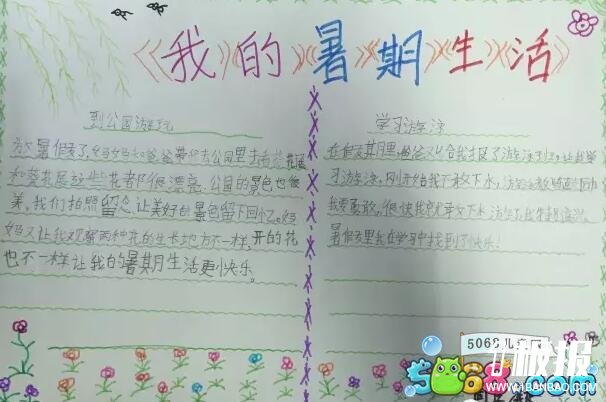 《我的暑期生活》
到公园游玩
放暑假了,妈妈和爸爸带我去公园里去看荷花展
和葵花展这些花都很漂亮.公园的景色也很
美,我们拍照留念,让美好的景色留下回忆。妈
妈又让我观察两种花的生长地方不一样,开的花
也不一样让我的暑期生活更快乐。
学习游泳
在假期里,爸爸又给我报了游泳班,让我学
习游泳,刚开始我不敢下水,游泳教练
我要勇敢,很快我就敢下水游泳了,我
暑假里我在学习中找到了快乐!
5068儿
5068
极报
1BANBAO.COM